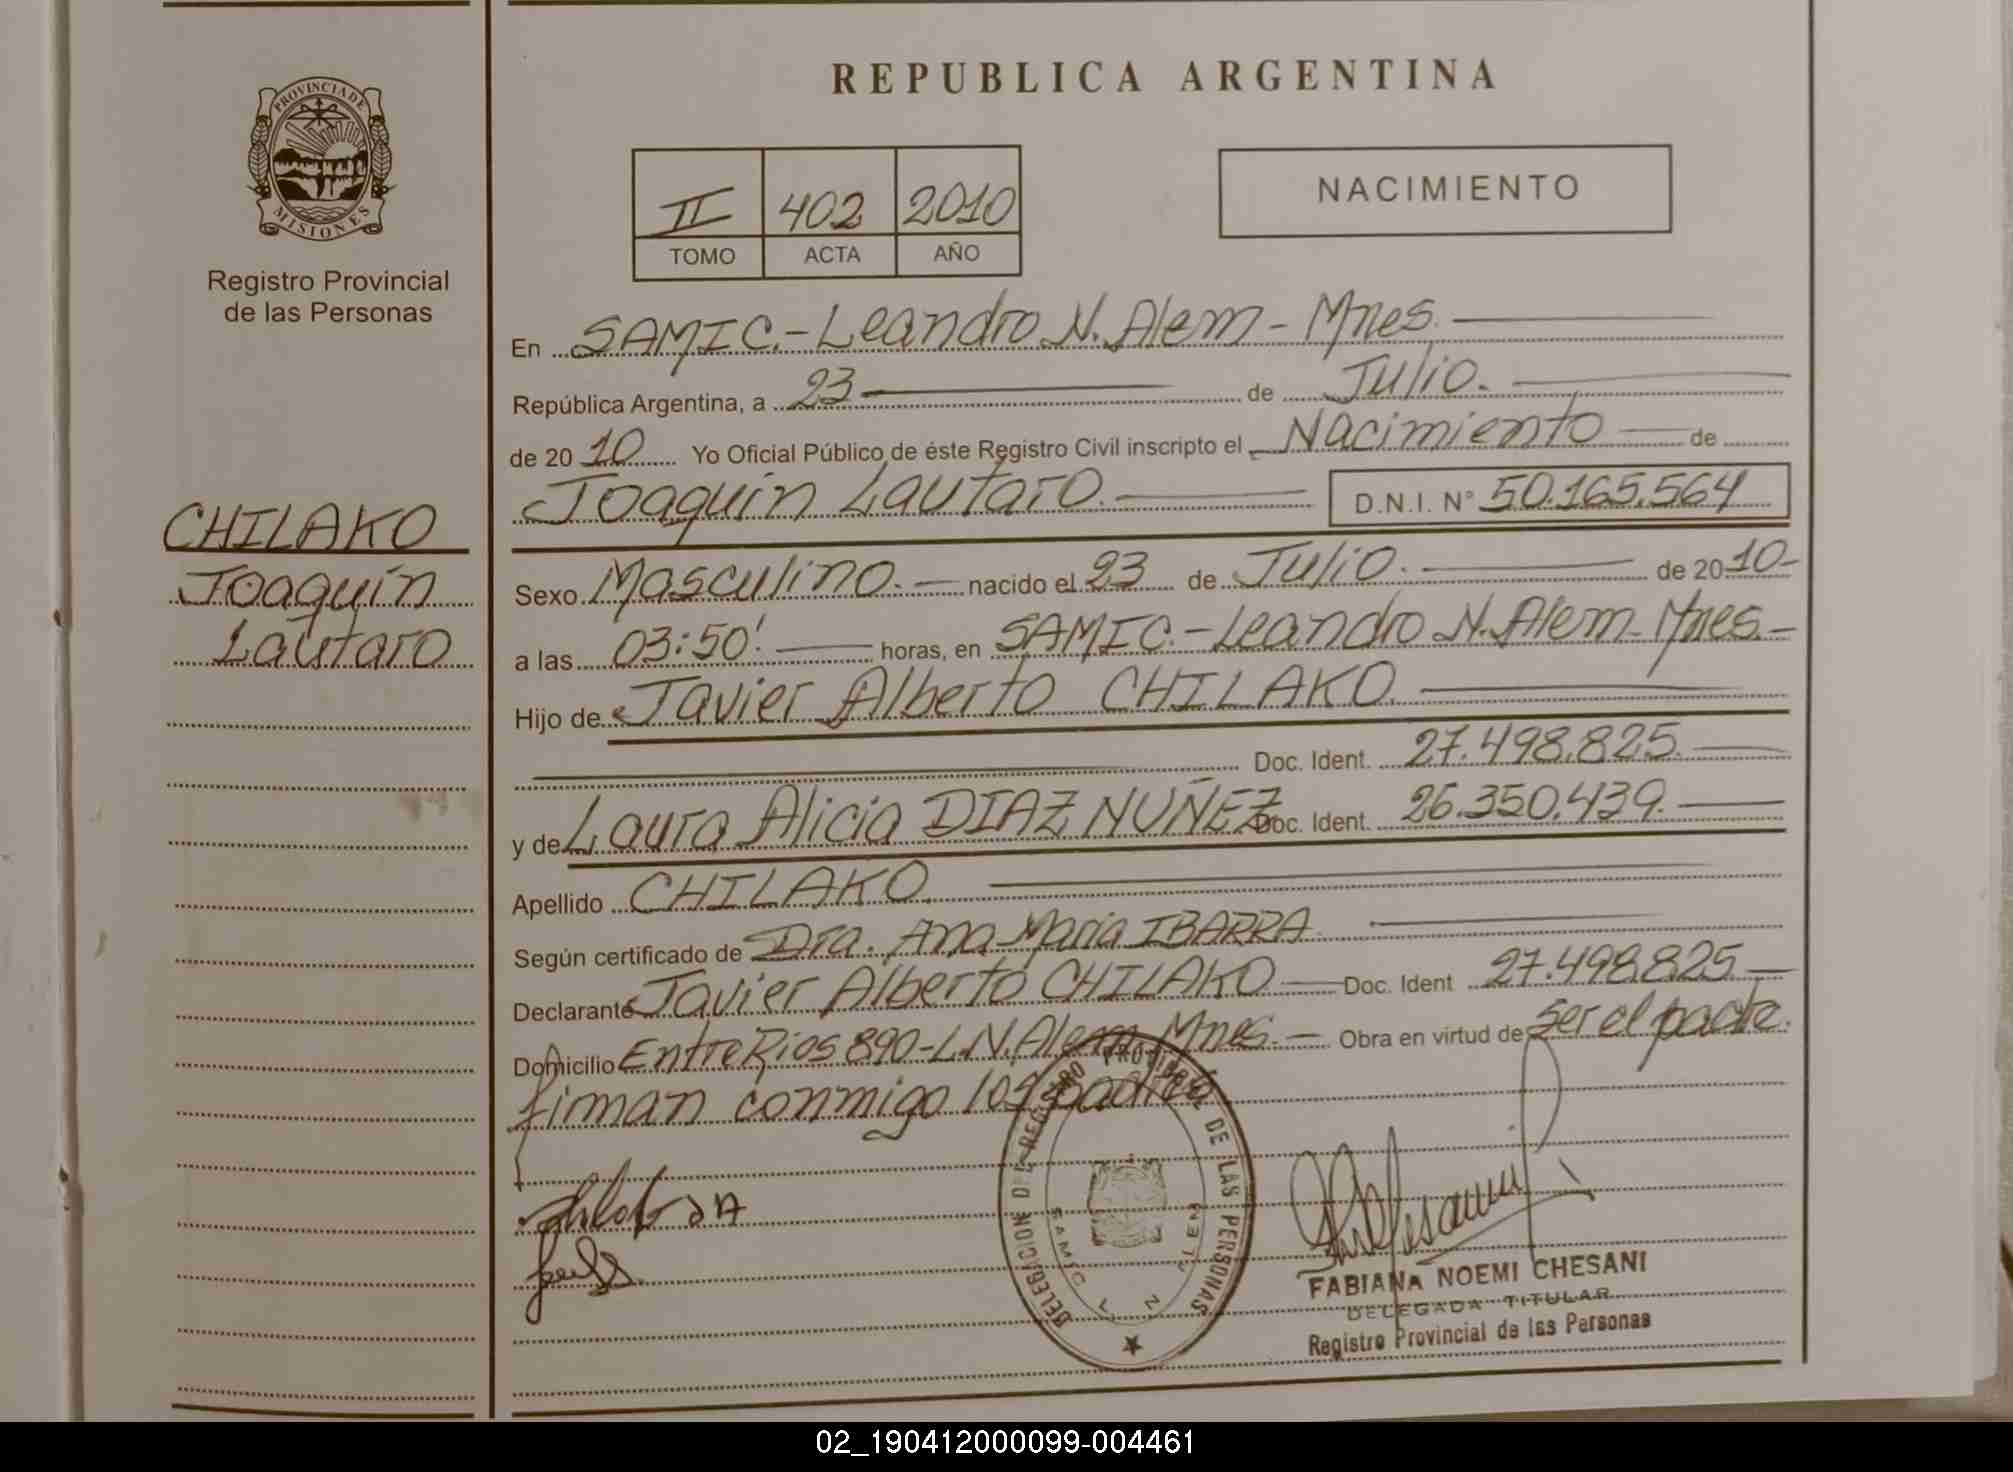 REPUBLICA ARGENTINA
PROVINCIA DE
MISIONES
Registro Provincial
de las Personas
II 402 2010
TOMO ACTA AÑO
NACIMIENTO
CHILAKO
Joaquín
Lautaro
En SAMIC.-Leandro N. Alem - Mnes.
República Argentina, a 23 de Julio.
de 20 10 Yo Oficial Público de éste Registro Civil inscripto el Nacimiento de
Joaquín Lautaro. D.N.I. N° 50.165.564
Sexo Masculino. nacido el 23 de Julio. de 20 10-
a las 03:50' horas, en SAMIC.-Leandro N. Alem - Mnes.-
Hijo de Javier Alberto CHILAKO.
Doc. Ident. 27.498.825.
y de Laura Alicia DIAZ NUÑEZ Doc. Ident. 26.350.439.
Apellido CHILAKO.
Según certificado de Dra. Ana María IBARRA.
Declarante Javier Alberto CHILAKO Doc. Ident 27.498.825
Domicilio Entre Ríos 890-L.N. Alem Mnes.- Obra en virtud de ser el padre.
firman conmigo los padres
DELEGACION DEL REGISTRO PROVINCIAL DE LAS PERSONAS
SAMIC L N ALEM
FABIANA NOEMI CHESANI
DELEGADA TITULAR
Registro Provincial de las Personas
02_190412000099-004461